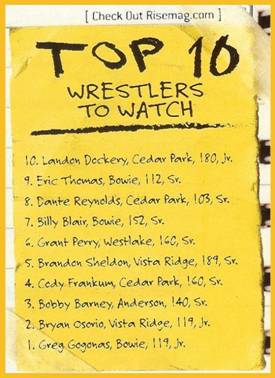 [ Check Out Risemag.com ]
TOP 10
WRESTLERS
TO WATCH
10. Landon Dockery, Cedar Park, 180, Jr.
9. Eric Thomas, Bowie, 112, Sr.
8. Dante Reynolds, Cedar Park, 103, Sr.
7. Billy Blair, Bowie, 152, Sr.
6. Grant Perry, Westlake, 160, Sr.
5. Brandon Sheldon, Vista Ridge, 189, Sr.
4. Cody Frankum, Cedar Park, 160, Sr.
3. Bobby Barney, Anderson, 140, Sr.
2. Bryan Osorio, Vista Ridge, 119, Jr.
1. Greg Gogonas, Bowie, 119, Jr.